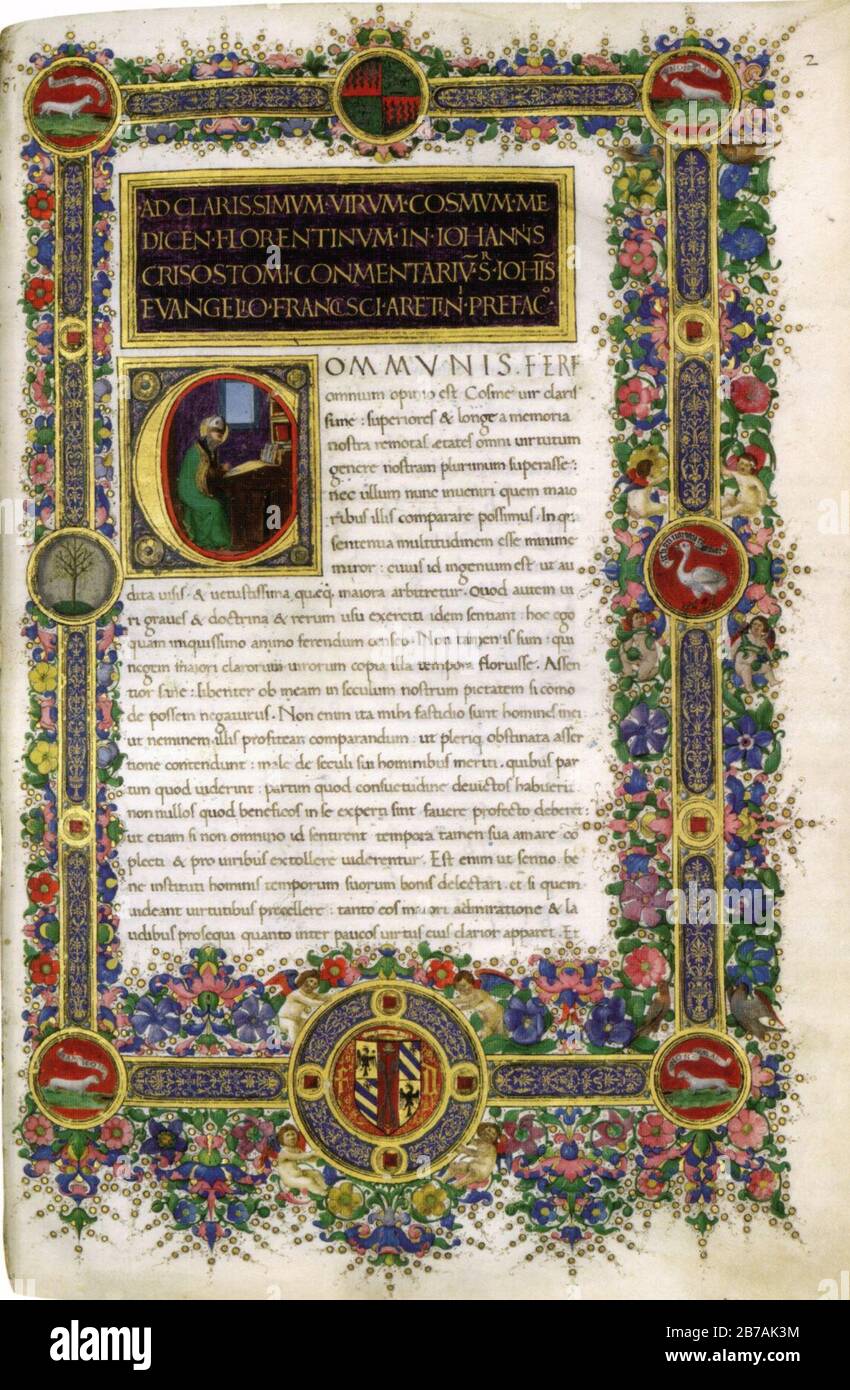 2
AD CLARISSIMVM·VIRVM·COSMVM·ME
DICEN·FLORENTINVM·IN·IOHANNS
CRISOSTOMI·CONMENTARIV̄·SR·IOHIS̄
EVANGELIO·FRANCSCI·ARETINI·PREFACO·
COMMVNIS·FERE
omnium opinio est Cosme uir claris
sime: superiores & longe a memoria
nostra remotas ætates omni uirtutum
genere nostram plurimum superasse:
nec illum nunc inueniri quem maio
ribus illis comparare possimus. In qua
sententia multitudinem esse minime
miror: cuius id ingenium est ut au
dita uisis & uetustissima quæq; maiora arbitretur. Quod autem ui
ri graues & doctrina & rerum usu exerciti idem sentiant: hoc ego
quam iniquissimo animo ferendum censeo. Non tamen is sum: qui
negem maiori clarorum uirorum copia illa tempora floruisse. Assen
tior sane: libenter ob meam in seculum nostrum pietatem si como
de possem negaturus. Non enim ita mihi fastidio sunt homines mei
ut neminem illis profitear comparandum: ut pleriq; obstinata asser
tione contendunt: male de seculi sui hominibus meriti. quibus par
tim quod uiderint: partim quod consuetudine deuictos habuerit
non nullos quod beneficos in se experti sint fauere profecto deberet:
ut etiam si non omnino id sentirent tempora tamen sua amare cō
plecti & pro uiribus extollere uiderentur. Est enim ut sentio. be
ne instituti hominis temporum suorum bonis delectari. et si quem
uideant uirtutibus precellere: tanto eos maiori admiratione & la
udibus prosequi quanto inter paucos uirtus eius clarior apparet. Et
alamy
Image ID: 2B7AK3M
www.alamy.com